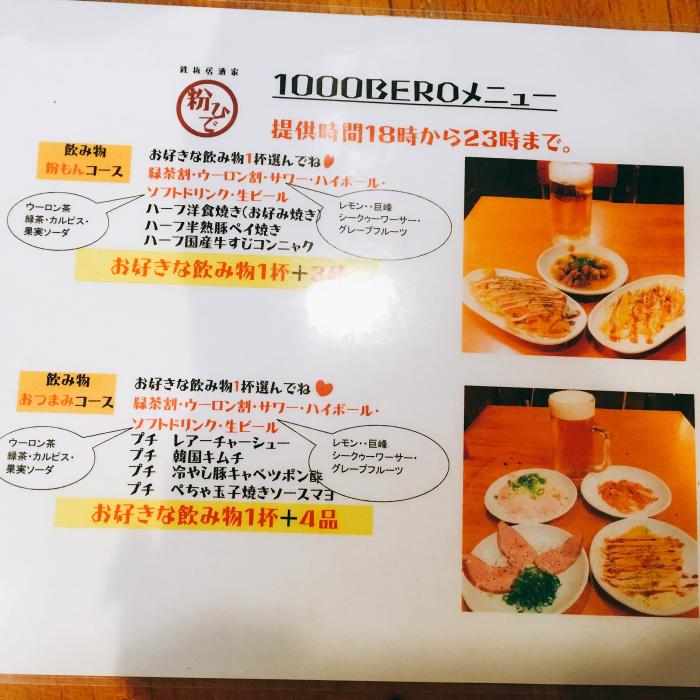 鉄板居酒家
粉ひで
1000BEROメニュー
提供時間18時から23時まで。
飲み物
粉もんコース
お好きな飲み物1杯選んでね♥
緑茶割・ウーロン割・サワー・ハイボール・
ソフトドリンク・生ビール
ウーロン茶
緑茶・カルピス・
果実ソーダ
レモン・・巨峰
シークゥーワーサー・
グレープフルーツ
ハーフ洋食焼き(お好み焼き)
ハーフ半熟豚ペイ焼き
ハーフ国産牛すじコンニャク
お好きな飲み物1杯+3品
飲み物
おつまみコース
お好きな飲み物1杯選んでね♥
緑茶割・ウーロン割・サワー・ハイボール・
ソフトドリンク・生ビール
ウーロン茶
緑茶・カルピス・
果実ソーダ
レモン・・巨峰
シークゥーワーサー・
グレープフルーツ
プチ レアーチャーシュー
プチ 韓国キムチ
プチ 冷やし豚キャベツポン酢
プチ ぺちゃ玉子焼きソースマヨ
お好きな飲み物1杯+4品